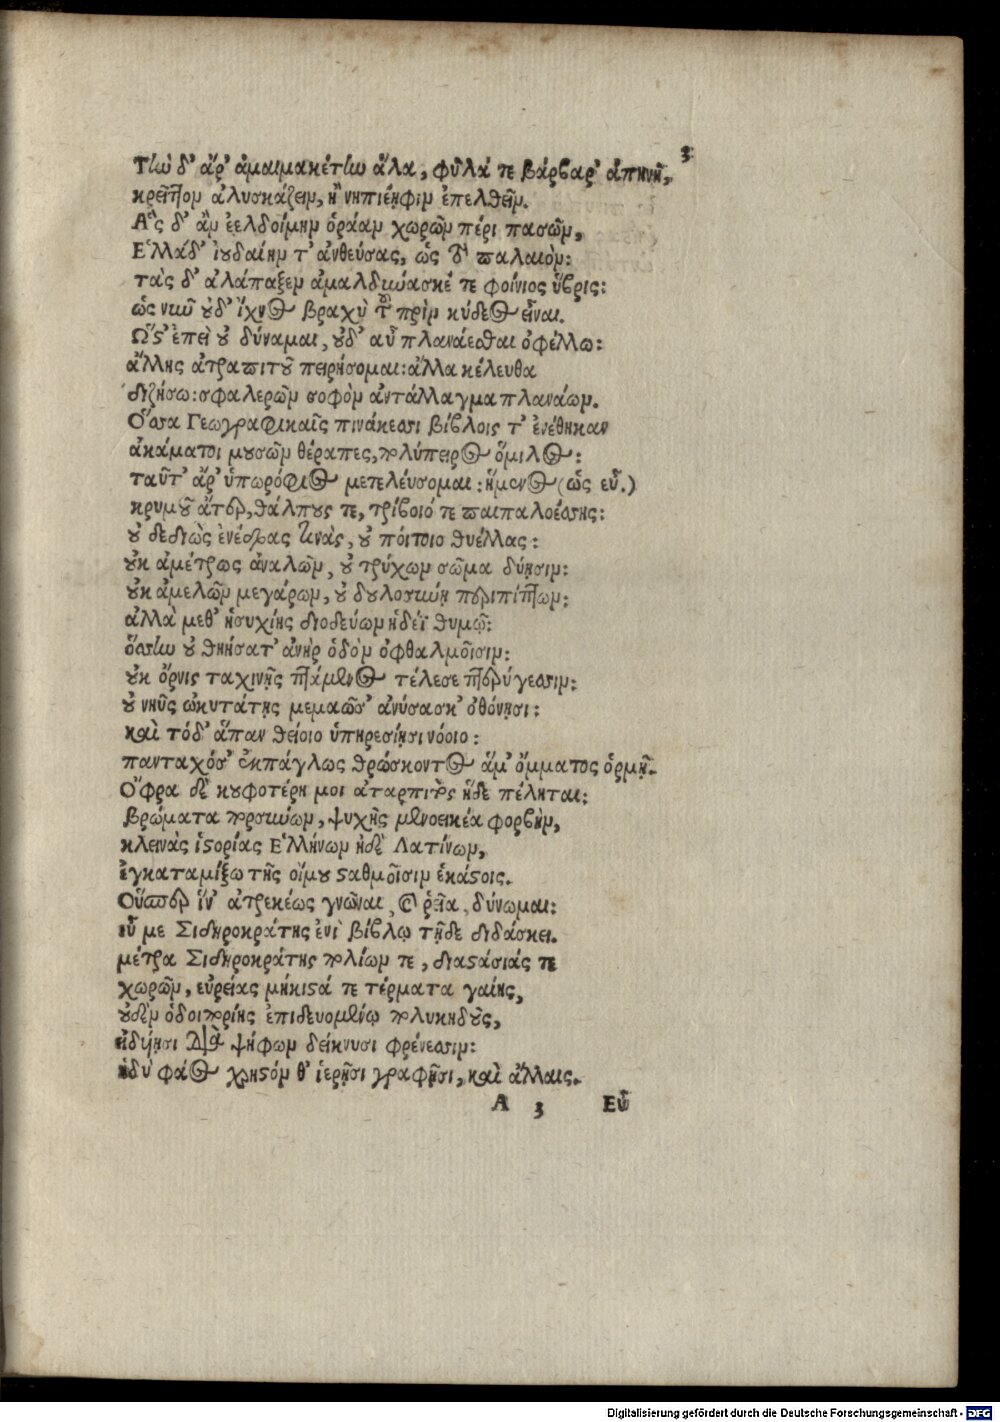 3
Τὴν δ' ἄρ' ἀμαιμακέτην ἅλα, φῦλά τε βάρβαρ' ἀπηνῆ,
κρεῖττον ἀλυσκάζειν, ἢ νηπιέῃφιν ἐπελθεῖν.
Ἃς δ' ἂν ἐελδοίμην ὁράαν χωρῶν πέρι πασῶν,
Ἑλλάδ' ἰουδαίην τ' ἀνθεύσας, ὡς δὴ παλαιὸν:
τὰς δ' ἀλάπαξεν ἀμαλδιώασκέ τε φοίνιος ὕβρις:
ὡς νιῶ οὐδ' ἴχνος βραχὺ τῶν πρὶν κύδεος εἶναι.
Ὥς' ἐπεὶ οὐ δύναμαι, οὐδ' αὖ πλανάεσθαι ὀφέλλω:
ἄλλης ἀτραπιτοῦ πειρήσομαι: ἄλλα κέλευθα
διζήσω: σφαλερῶν σοφὸν ἀντάλλαγμα πλανάων.
Ὅσσα Γεωγραφικαῖς πινάκεσσι βίβλοις τ' ἐνέθηκαν
ἀκάματοι μουσῶν θέραπες, πολύπειρος ὅμιλος:
ταῦτ' ἄρ' ὑπωρόφιος μετελεύσομαι: ἥμενος (ὡς εὖ.)
κρυμοῦ ἄτερ, θάλπους τε, τρίβοιό τε παιπαλοέσσης:
οὐ δεδιὼς ἐνέδρας τινὰς, οὐ πόντοιο θυέλλας:
οὐκ ἀμέτρως ἀναλῶν, οὐ τρύχων σῶμα δύῃσιν:
οὐκ ἀμελῶν μεγάρων, οὐ δουλοσύνῃ περιπίπτων:
ἀλλὰ μεθ' ἡσυχίης διοδεύων ἡδέϊ θυμῷ:
ὅστω οὐ θηήσατ' ἀνὴρ ὁδὸν ὀφθαλμοῖσιν:
οὐκ ὄρνις ταχινῇς πτάμενος τέλεσε πτερύγεσσιν:
οὐ νηῦς ὠκυτάτης μεμαῶσ' ἀνύσασκ' ὀθόνῃσι:
καὶ τόδ' ἅπαν θείοιο ὑπηρεσίῃσι νόοιο:
πανταχόσ' ἐκπάγλως θρώσκοντος ἅμ' ὄμματος ὁρμῇ.
Ὄφρα δὲ κουφοτέρη μοι ἀταρπιτὸς ἥδε πέληται:
βρώματα πορσύων, ψυχῆς μενοεικέα φορβὴν,
κλεινὰς ἱστορίας Ἑλλήνων ἠδὲ Λατίνων,
ἐγκαταμίξω τῆς οἴμου σταθμοῖσιν ἑκάστοις.
Οὕπερ ἵν' ἀτρεκέως γνῶναι, καὶ ῥεῖα, δύνωμαι:
εὖ με Σιδηροκράτης ἐνὶ βίβλῳ τῇδε διδάσκει.
μέτρα Σιδηροκράτης πολίων τε, διαστάσιάς τε
χωρῶν, εὐρείας μήκιστά τε τέρματα γαίης,
οὐδὲν ὁδοιπορίης ἐπιδευομένῳ πολυκηδοῦς,
εἰδυίῃσι διὰ ψήφων δείκνυσι φρένεσσιν:
ἡδὺ φάος χρηστόν θ' ἱερῇσι γραφῇσι, καὶ ἄλλαις.
A 3 Εὖ
Digitalisierung gefördert durch die Deutsche Forschungsgemeinschaft - DFG